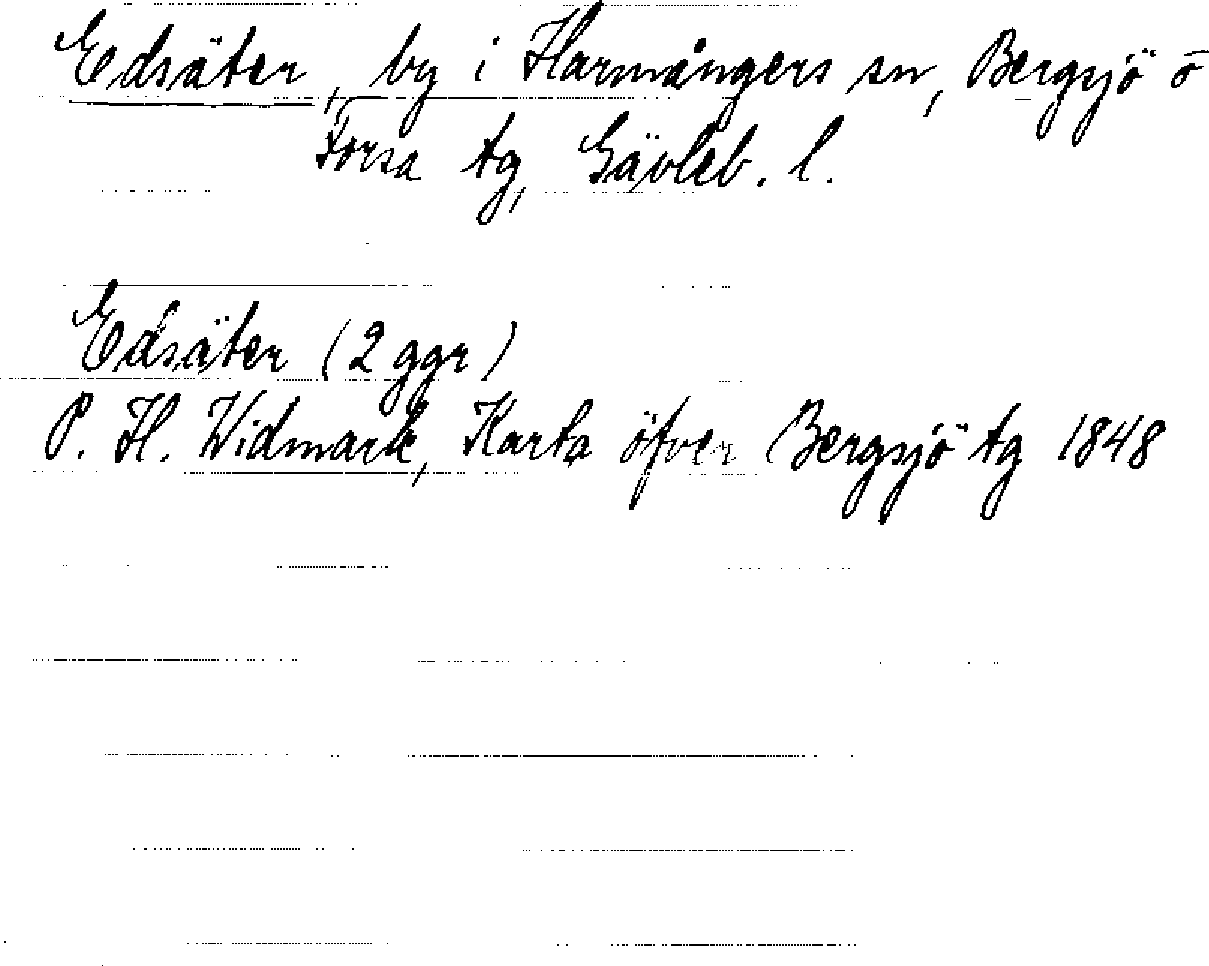 Edsäter, by i Harmångers sn, Bergsjö o
Forsa tg, Gävleb. l.
Edsäter (2 ggr)
P. H. Widmark, Karta öfver Bergsjö tg 1848